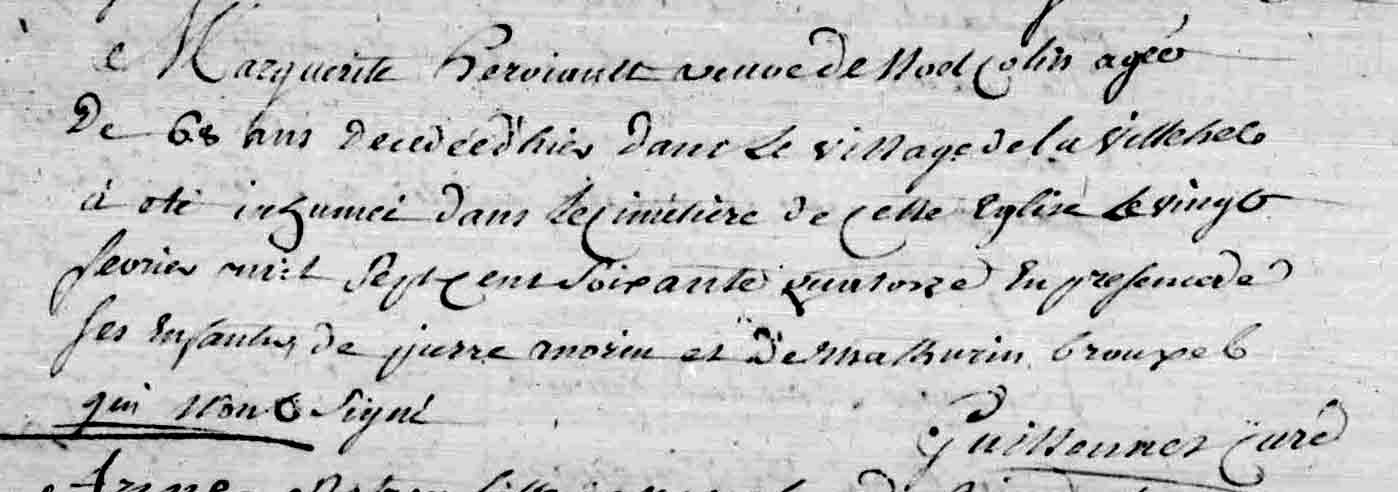 Marguerite herviault veuve de Noel Colin agée
De 68 ans decedée d'hier dans le village de la Villehel
à eté inhumée dans le Cimetiere de Cette Eglise le vingt
fevrier mil Sept Cent Soixante quatorze En presence de
ses Enfants, de pierre morin et De Mathurin brouxel
qui n'ont Signé
Guillemner Curé
Anne